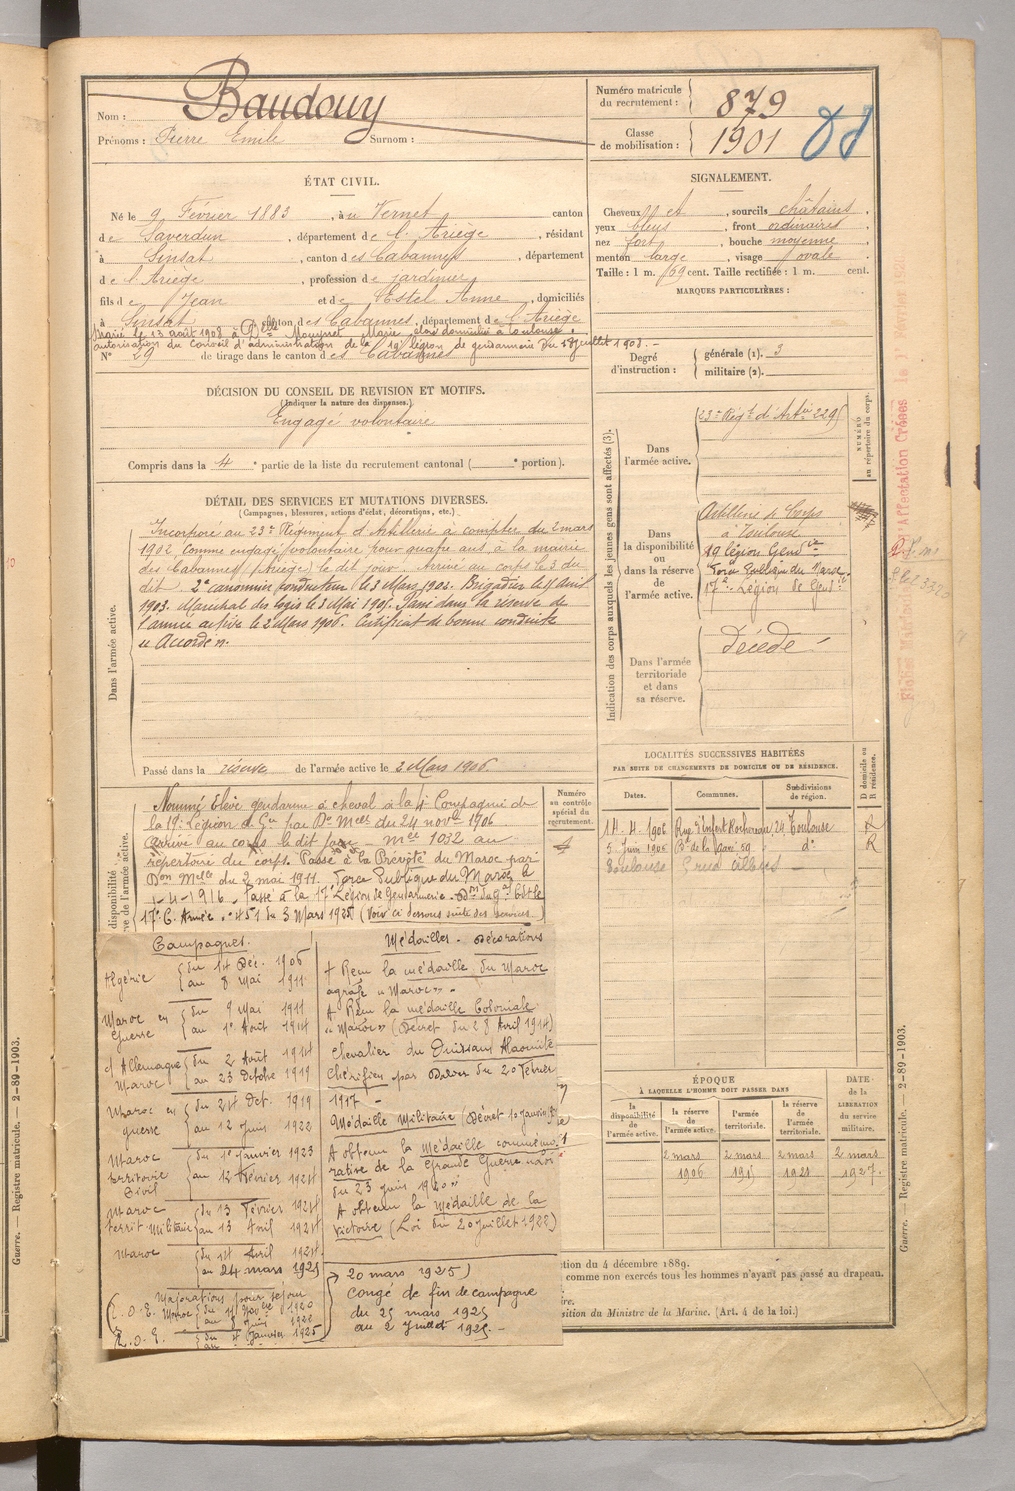 Nom : Baudouy
Prénoms : Pierre Emile Surnom :
Numéro matricule du recrutement : 879
Classe de mobilisation : 1901
ÉTAT CIVIL.
Né le 9 Février 1883, à u Vernet canton
de Saverdun, département de l'Ariège, résidant
à Sinsat, canton des Cabannes, département
de l'Ariège, profession de jardinier
fils de Jean et de Estel Anne, domiciliés
à Sinsat, canton des Cabannes, département de l'Ariège
Marié le 13 août 1908 à Delle Mouynet Marie, domiciliée à Toulouse.
autorisation du Conseil d'administration de la 19e légion de gendarmerie du juillet 1908.-
N° 29 de tirage dans le canton des Cabannes
SIGNALEMENT.
Cheveux et, sourcils châtains,
yeux bleus, front ordinaires
nez fort, bouche moyenne
menton large, visage ovale
Taille : 1 m. 69 cent. Taille rectifiée : 1 m. cent.
MARQUES PARTICULIÈRES :
Degré d'instruction : générale (1). 3
militaire (2).
DÉCISION DU CONSEIL DE REVISION ET MOTIFS.
(Indiquer la nature des dispenses.)
Engagé volontaire
Compris dans la 4e partie de la liste du recrutement cantonal ( e portion).
DÉTAIL DES SERVICES ET MUTATIONS DIVERSES.
(Campagnes, blessures, actions d'éclat, décorations, etc.)
Dans l'armée active.
Incorporé au 23e Régiment d'Artillerie à compter du 2 mars
1902, comme engagé volontaire pour quatre ans, à la mairie
des Cabannes (Ariège) le dit jour. Arrivé au corps le 3 du
dit. 2e canonnier conducteur le 3 Mars 1902. Brigadier le 11 Avril
1903. Maréchal des logis le 8 Mai 1905. Passé dans la réserve de
l'armée active le 2 Mars 1906. Certificat de bonne conduite
"Accordé".
Passé dans la réserve de l'armée active le 2 Mars 1906
Indication des corps auxquels les jeunes gens sont affectés (3).
NUMÉRO au répertoire du corps.
Dans l'armée active.
23e Régt d'Artie 2295
Dans la disponibilité ou dans la réserve de l'armée active.
Artillerie de Corps
à Toulouse
19 légion Gendie
Force Publique du Maroc
17e Légion de Gendie
Dans l'armée territoriale et dans sa réserve.
Décédé
Fiches Matricules d'Affectation Créées le 1er Février 192
LOCALITÉS SUCCESSIVES HABITÉES
PAR SUITE DE CHANGEMENTS DE DOMICILE OU DE RÉSIDENCE.
Dates. Communes. Subdivisions de région. D domicile ou R résidence.
14-4-1906 Rue d'Enfert Rochereau, 24 Toulouse R
5 Juin 1906 Bd de la Gare 59 do R
Toulouse
Numéro au contrôle spécial du recrutement.
Nommé Elève gendarme à cheval à la 4e Compagnie de
la 19e Légion de Gie par Don Mlle du 24 novbre 1906
Arrivé au corps le dit jour - mle 1032 au
répertoire du corps. Passé à la Prévôté du Maroc par
Don Mlle du 2 mai 1911. Force Publique du Maroc le
1-4-1916. Passé à la 17e Légion de Gendarmerie
17e C. Armée n° 451 du 3 Mars 1925 (Voir ci-dessous suite des services)
Campagnes.
Algérie du 14 Déc. 1906
au 8 Mai 1911
Maroc en guerre du 9 Mai 1911
au 1er Août 1914
cl Allemagne Maroc du 2 Août 1914
au 23 Octobre 1919
Maroc en guerre du 24 Oct. 1919
au 12 Juin 1922
Maroc territoire Civil du 1er Janvier 1923
au 12 Février 1924
Maroc territ. Militaire du 13 Février 1924
au 13 Avril 1924
Maroc du 14 Avril 1924
au 24 mars 1925
Majorations pour séjour
Médailles - Décorations
+ Reçu la médaille du Maroc
agrafe "Maroc" -
A Reçu la médaille Coloniale
"Maroc" (Décret du 28 Avril 1914)
Chevalier du Ouissam Alaouite
Chérifien par Dahir du 20 Février
1917 -
Médaille Militaire
A obtenu la médaille commémo
rative de la Grande Guerre
du 23 Juin 1920
A obtenu la Médaille de la
Victoire (Loi du 20 Juillet 1922)
20 mars 1925)
congé de fin de campagne
du 25 mars 1925
au 2 Juillet 1925.-
ÉPOQUE
À LAQUELLE L'HOMME DOIT PASSER DANS
la disponibilité de l'armée active. la réserve de l'armée active. l'armée territoriale. la réserve de l'armée territoriale. DATE de la LIBÉRATION du service militaire.
2 mars 2 mars 2 mars 2 mars
1906 1915 1921 1927.
tion du 4 décembre 1889.
comme non exercés tous les hommes n'ayant pas passé au drapeau.
sition du Ministre de la Marine. (Art. 4 de la loi.)
Guerre. — Registre matricule. — 2-89-1903.
Guerre. — Registre matricule. — 2-89-1903.